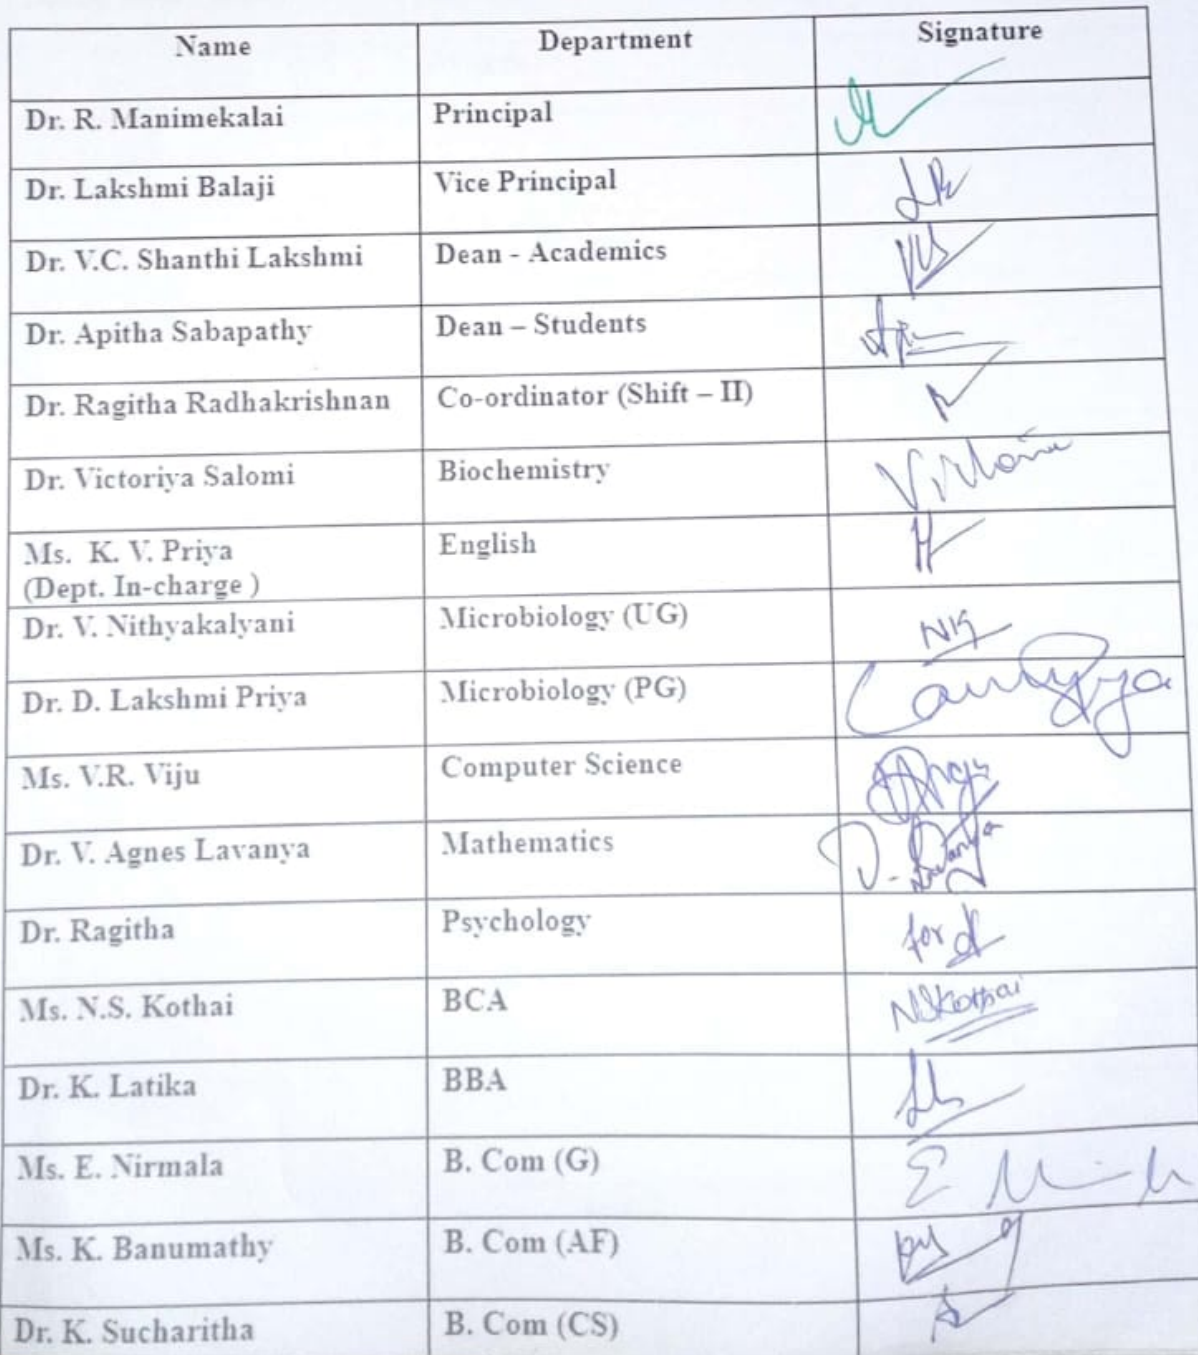 Name Department Signature
Dr. R. Manimekalai Principal
Dr. Lakshmi Balaji Vice Principal
Dr. V.C. Shanthi Lakshmi Dean - Academics
Dr. Apitha Sabapathy Dean – Students
Dr. Ragitha Radhakrishnan Co-ordinator (Shift – II)
Dr. Victoriya Salomi Biochemistry
Ms. K. V. Priya English
(Dept. In-charge )
Dr. V. Nithyakalyani Microbiology (UG)
Dr. D. Lakshmi Priya Microbiology (PG)
Ms. V.R. Viju Computer Science
Dr. V. Agnes Lavanya Mathematics
Dr. Ragitha Psychology for
Ms. N.S. Kothai BCA NSKothai
Dr. K. Latika BBA
Ms. E. Nirmala B. Com (G)
Ms. K. Banumathy B. Com (AF)
Dr. K. Sucharitha B. Com (CS)